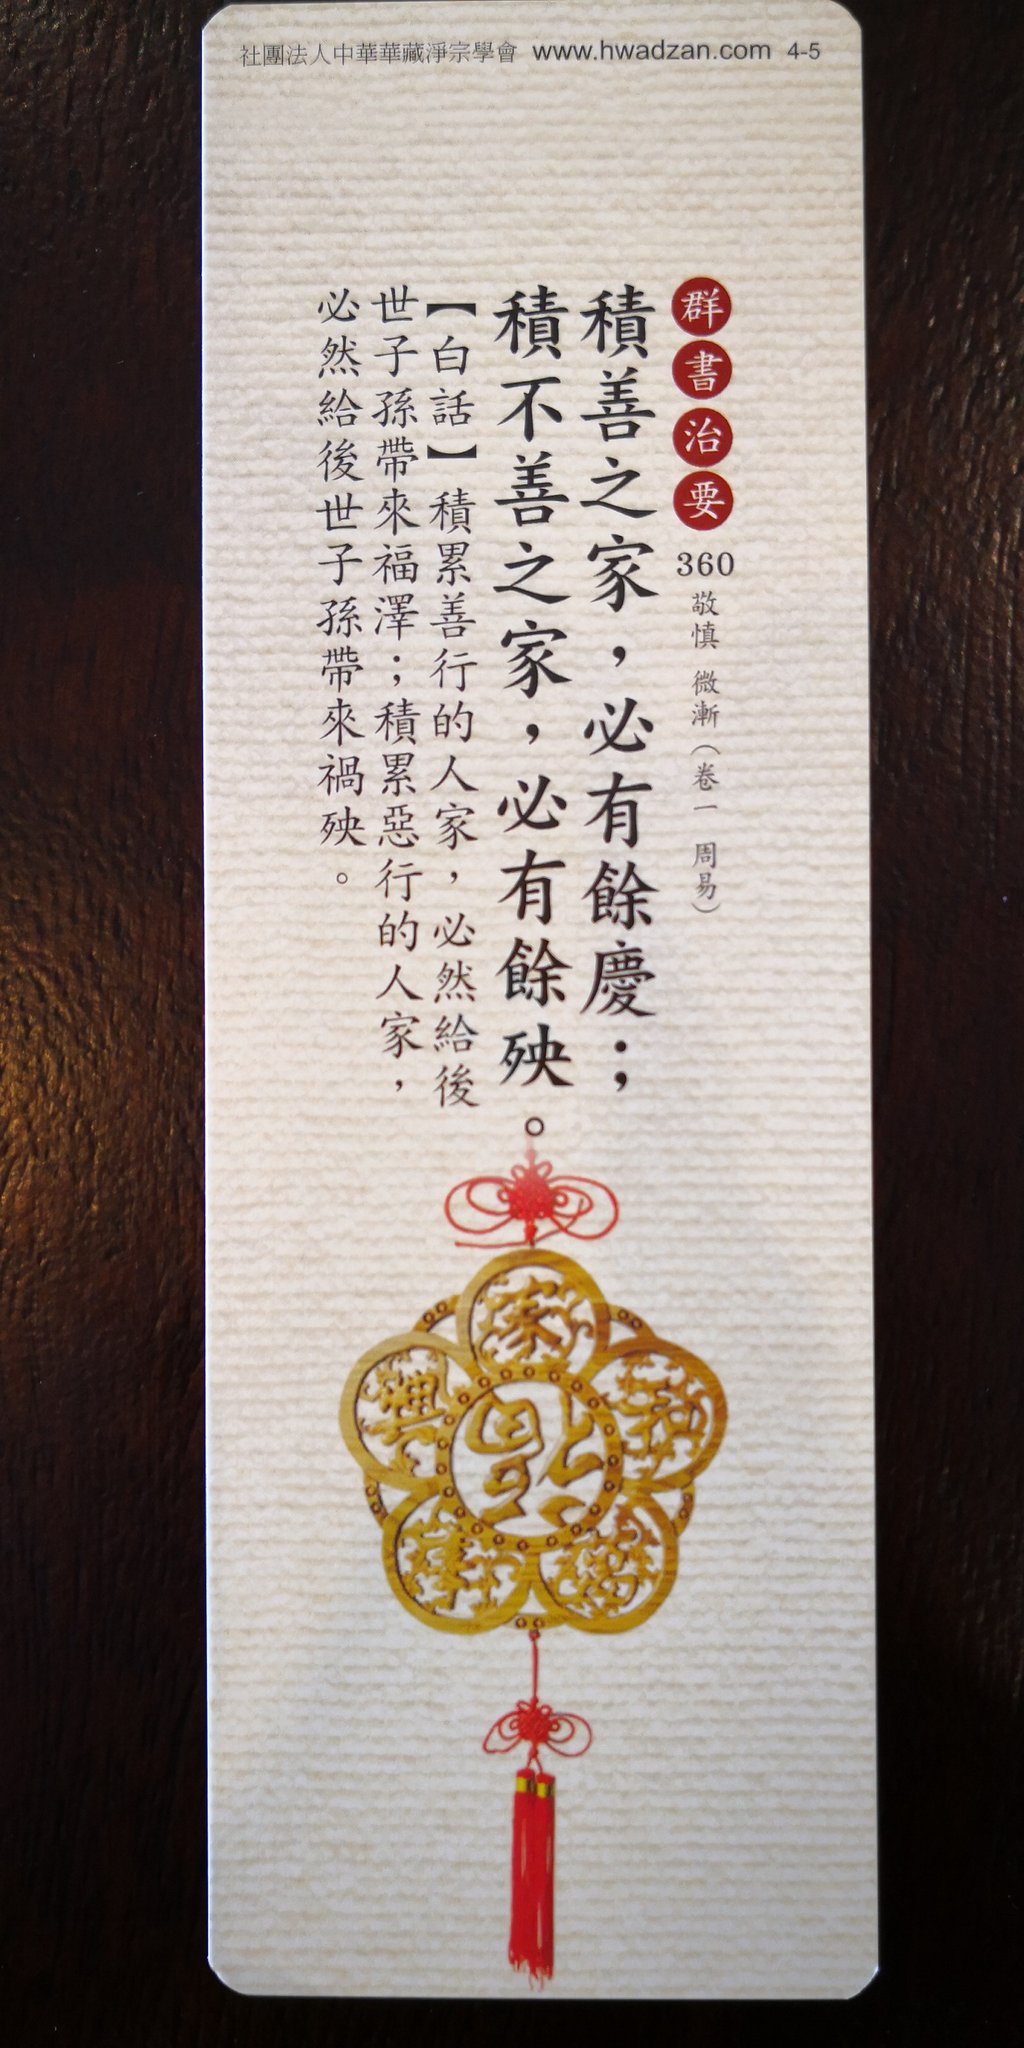 社團法人中華華藏淨宗學會 www.hwadzan.com 4-5
群書治要 360 敬慎 微漸（卷一 周易）
積善之家，必有餘慶；
積不善之家，必有餘殃。
【白話】積累善行的人家，必然給後
世子孫帶來福澤；積累惡行的人家，
必然給後世子孫帶來禍殃。
家
和
萬
事
興